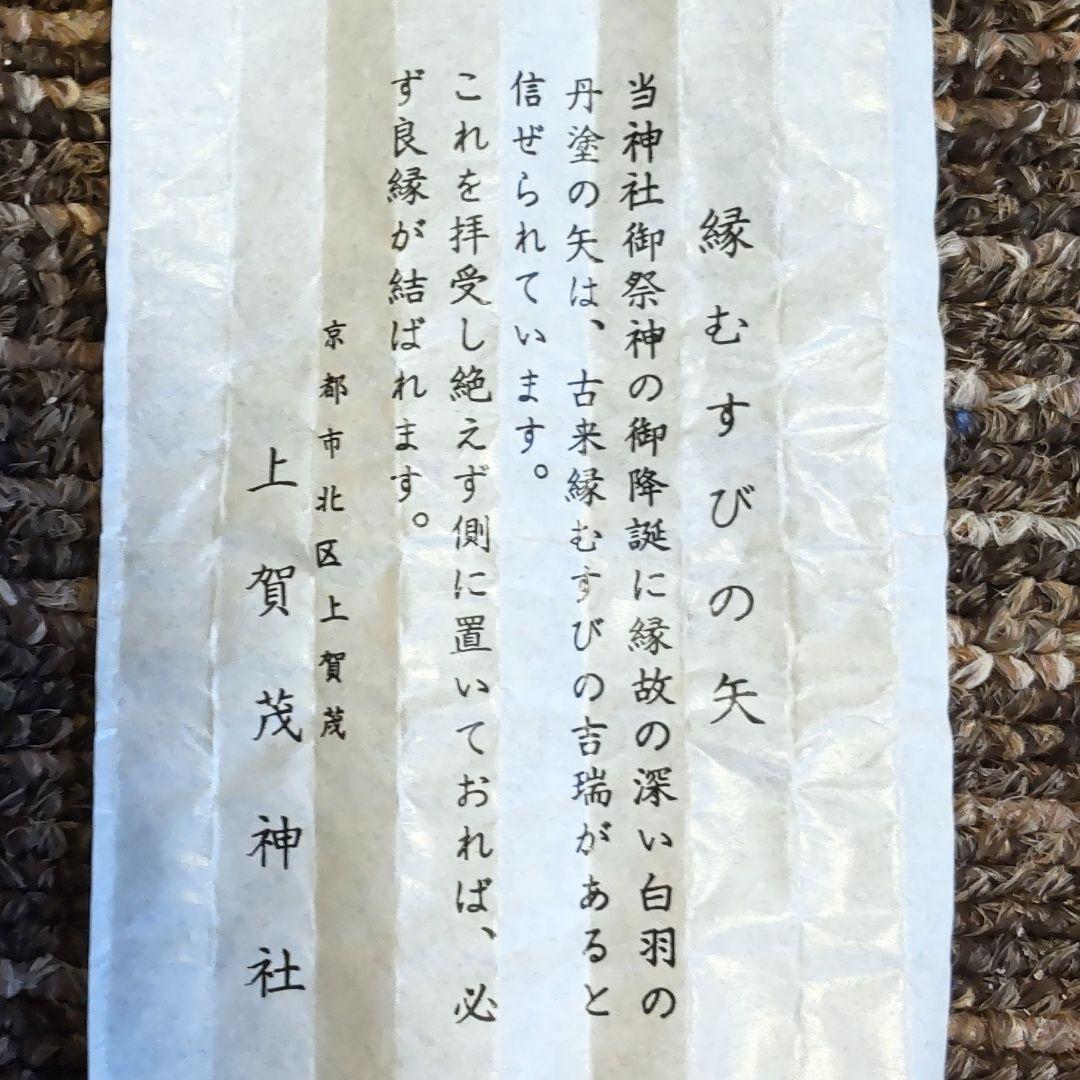 縁むすびの矢
当神社御祭神の御降誕に縁故の深い白羽の
丹塗の矢は、古来縁むすびの吉瑞があると
信ぜられています。
これを拝受し絶えず側に置いておれば、必
ず良縁が結ばれます。
京都市北区上賀茂
上賀茂神社